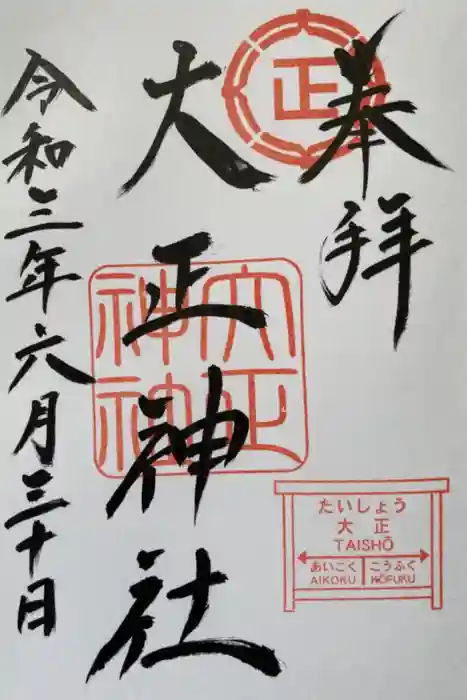 奉拝
正
大正神社
大正
神社
令和三年六月三十日
たいしょう
大正
TAISHŌ
あいこく
こうふく
AIKOKU
KŌFUKU